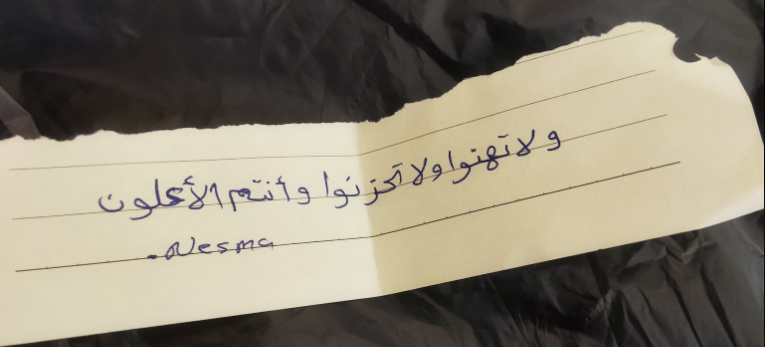 ولا تهنوا ولا تحزنوا وأنتم الأعلون
-Nesma